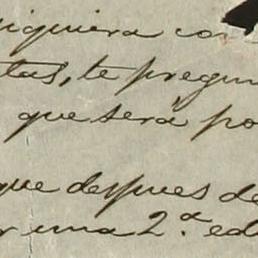 siquiera con
tas, te pregun
que será po
que despues de
r una 2.ª edi